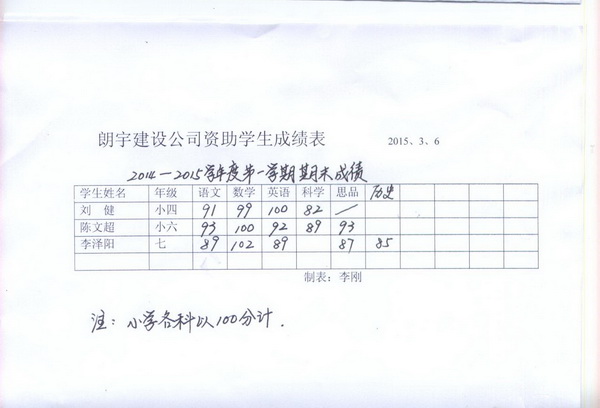 朗宇建设公司资助学生成绩表 2015、3、6
2014—2015学年度第一学期期末成绩
学生姓名 年级 语文 数学 英语 科学 思品 历史
刘 健 小四 91 99 100 82 /
陈文超 小六 93 100 92 89 93
李泽阳 七 89 102 89 87 85
制表：李刚
注：小学各科以100分计.